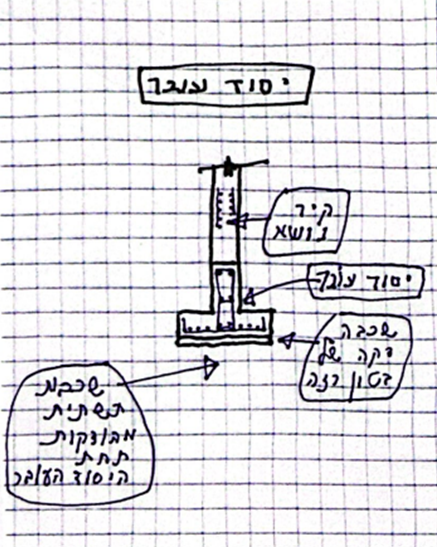 יסוד עובר
קיר
נושא
יסוד עובר
שכבה
דקה של
בטון רזה
שכבת
תשתית
מהודקות
תחת
היסוד העובר